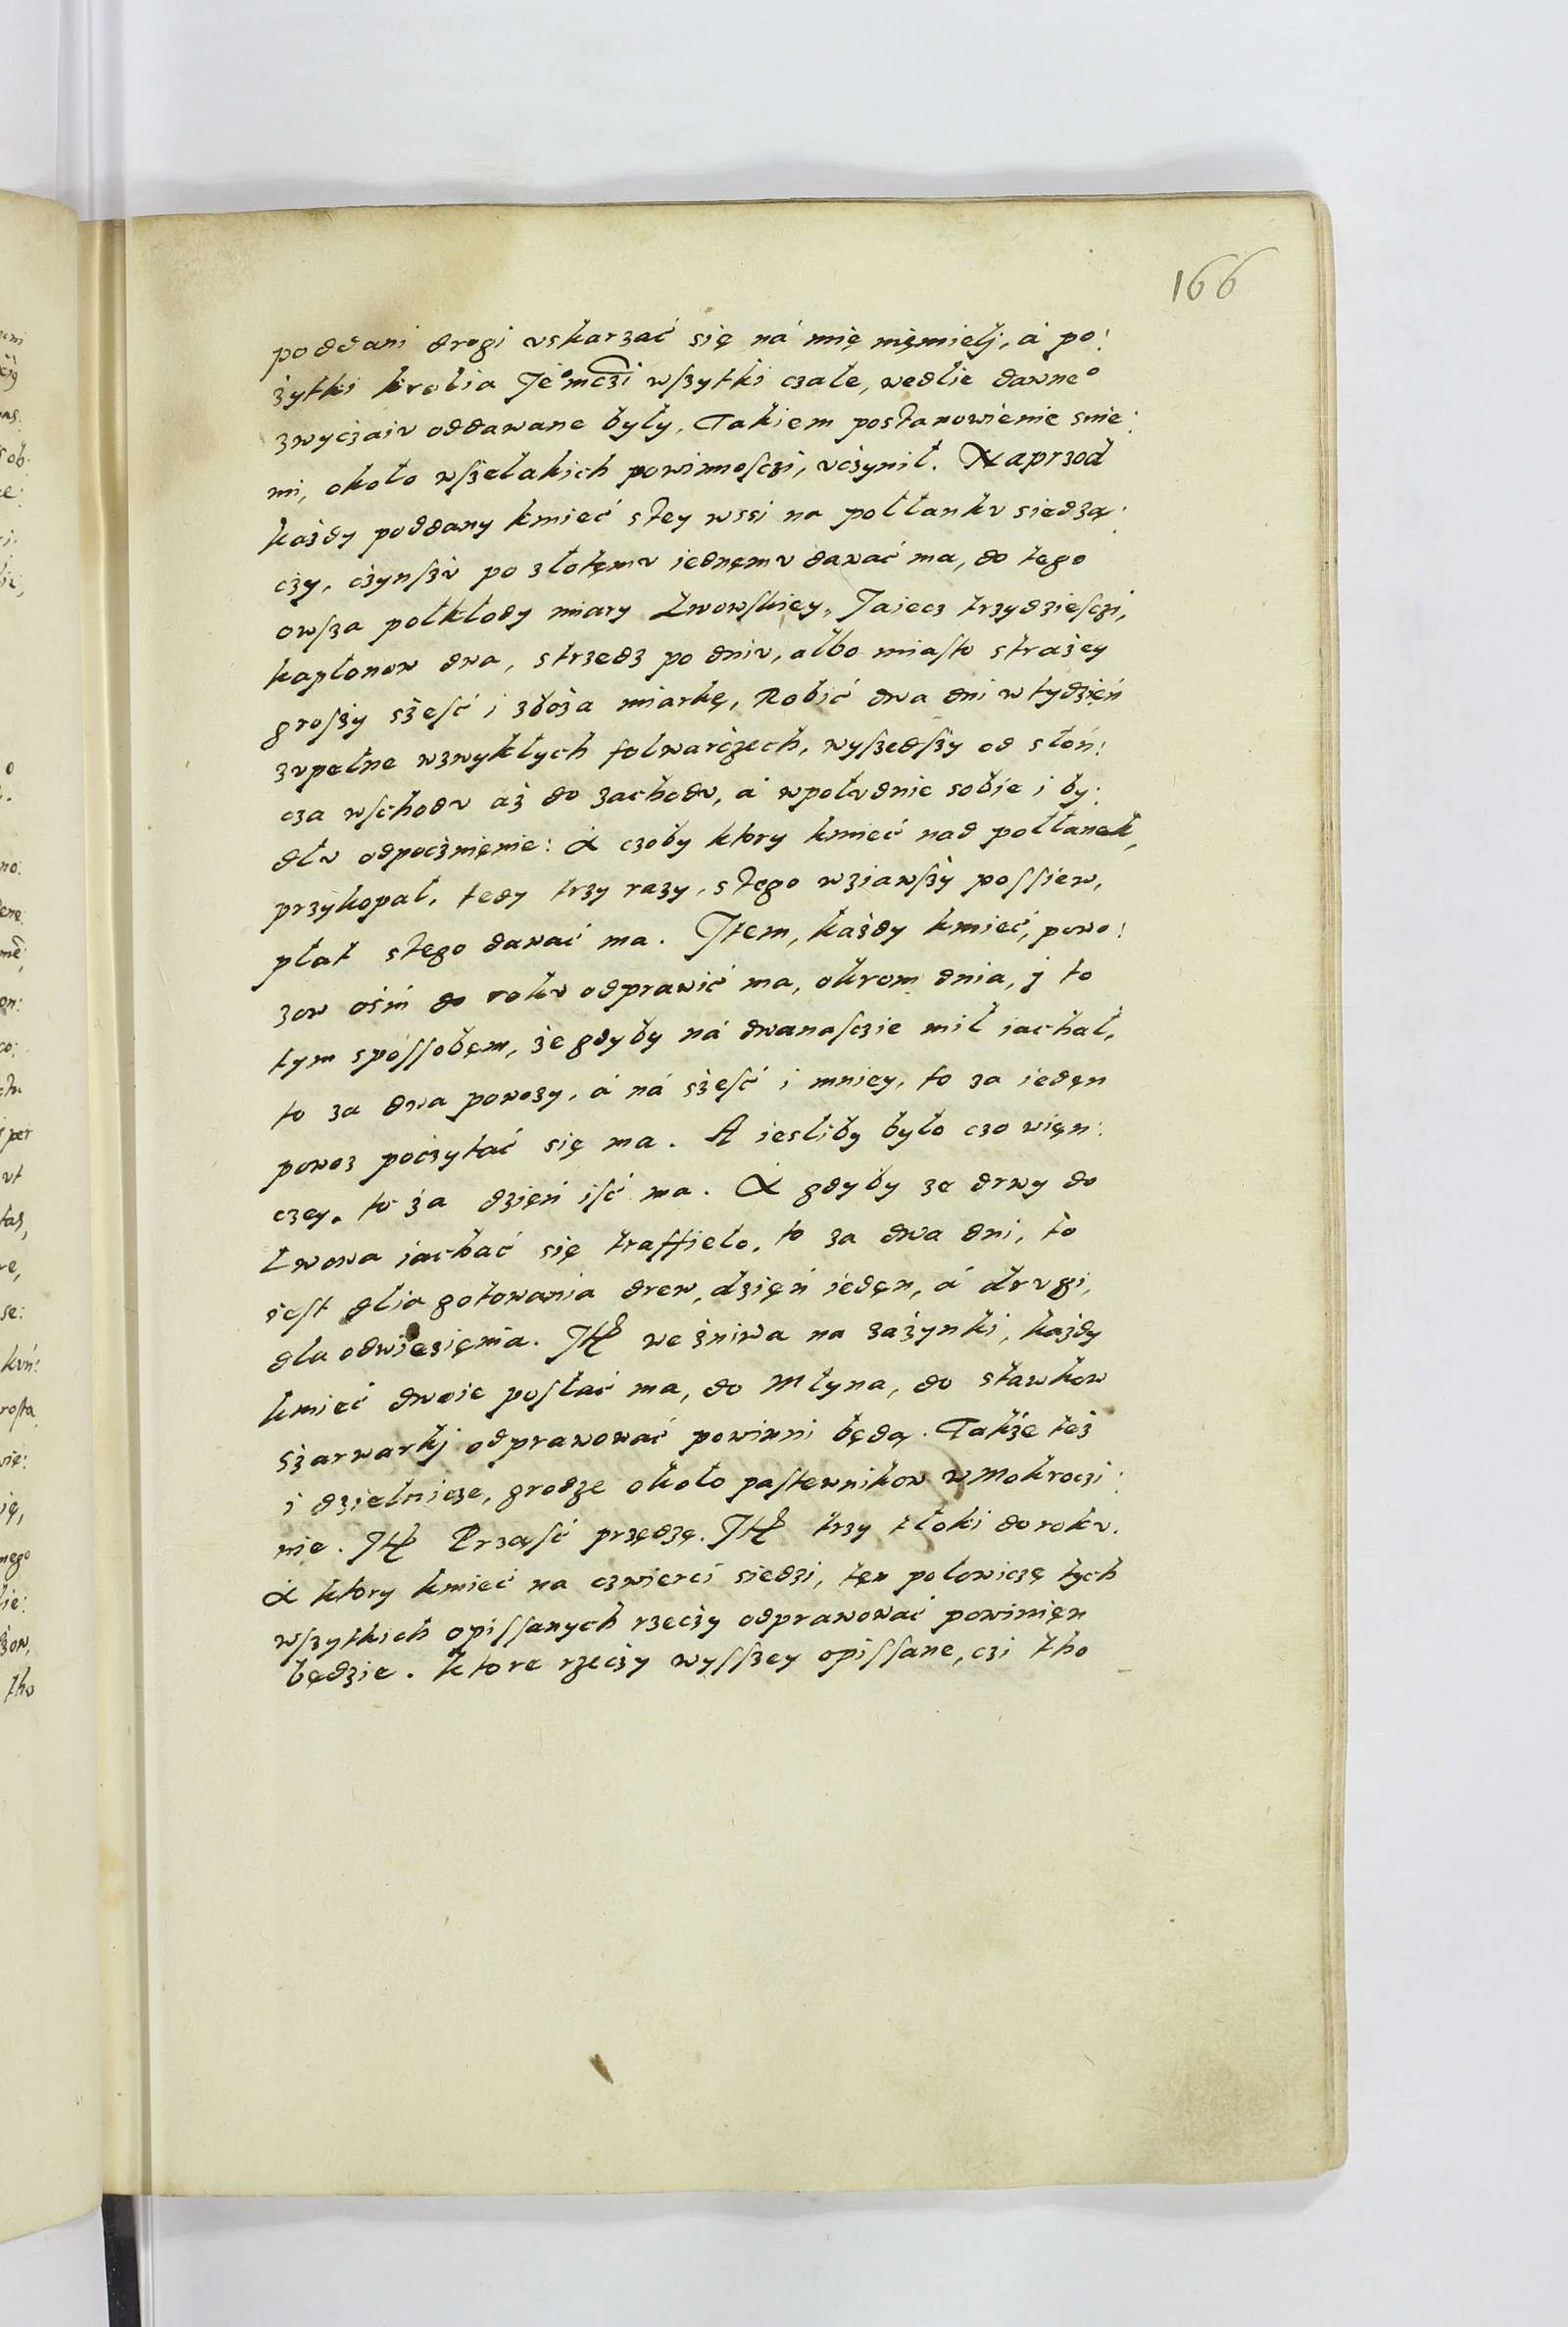 166
poddani drogi vskarzać się ná mię niemielj, á po:
żytki krolia Je͛o mczi wszytki czale, wedlie dawne͛o
zwyczaiv oddawane były, Takiem postanowienie snie:
mi, około wszelakich powinnosczi, vczynił. Naprzod
każdy poddany kmieć stey wssi na połłankv siedzą:
czy, czynszv po złotęmv iednęmv dawać ma, do tego
owsza połkłody miary Lwowskiey, Jaiecz trzydziesczi,
kapłonow dwa, strzedz po dniv, albo miasto strażey
groszy sześć i zboża miarkę, Robić dwa dni w tydzięń
zvpełne wzwykłych folwarczech, wyszedszy od słoń:
cza wschodv aż do zachodv, á wpołvdnie sobie i by:
dłv odpocznięnie: A czoby ktory kmieć nad połłanek,
przykopał, tedy trzy razy, stego wziawszy possiew,
płat stego dawać ma. Jtem, każdy kmieć, powo:
zow ośm do rokv odprawić ma, okrom dnia, j to
tym spossobęm, że gdyby ná dwanasczie mil iachał,
to za dwa powozy, á ná sześć i mniey, to za iedęn
powoz poczytać się ma. A iesliby było czo więn:
czey, to za dzięń iść ma. A gdyby ze drwy do
Lwowa iachać się traffieło, to za dwa dni, to
iest dlia gotowania drew, dzięń iedęn, á drvgi,
dla odwiezięnia. Jt͛ we żniwa na zażynki, każdy
kmieć dwoie posłać ma, do Młyna, do stawkow
szarwarkj odprawować powinni będą. Także też
i dzielnicze, grodze około pastewnikow w Mokroczi:
nie. Jt͛ Prząść przędzę. Jt͛ trzy tłoki do rokv.
A ktory kmieć na czwierci siedzi, tęn połowiczę tych
wszytkich opissanych rzeczy odprawować powinięn
będzie. ktore rzeczy wysszey opissane, czi tho